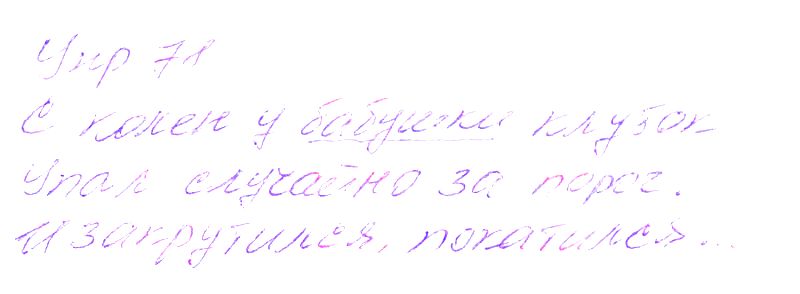 Упр 71
С колен у бабушки клубок
Упал случайно за порог.
И закрутился, покатился...